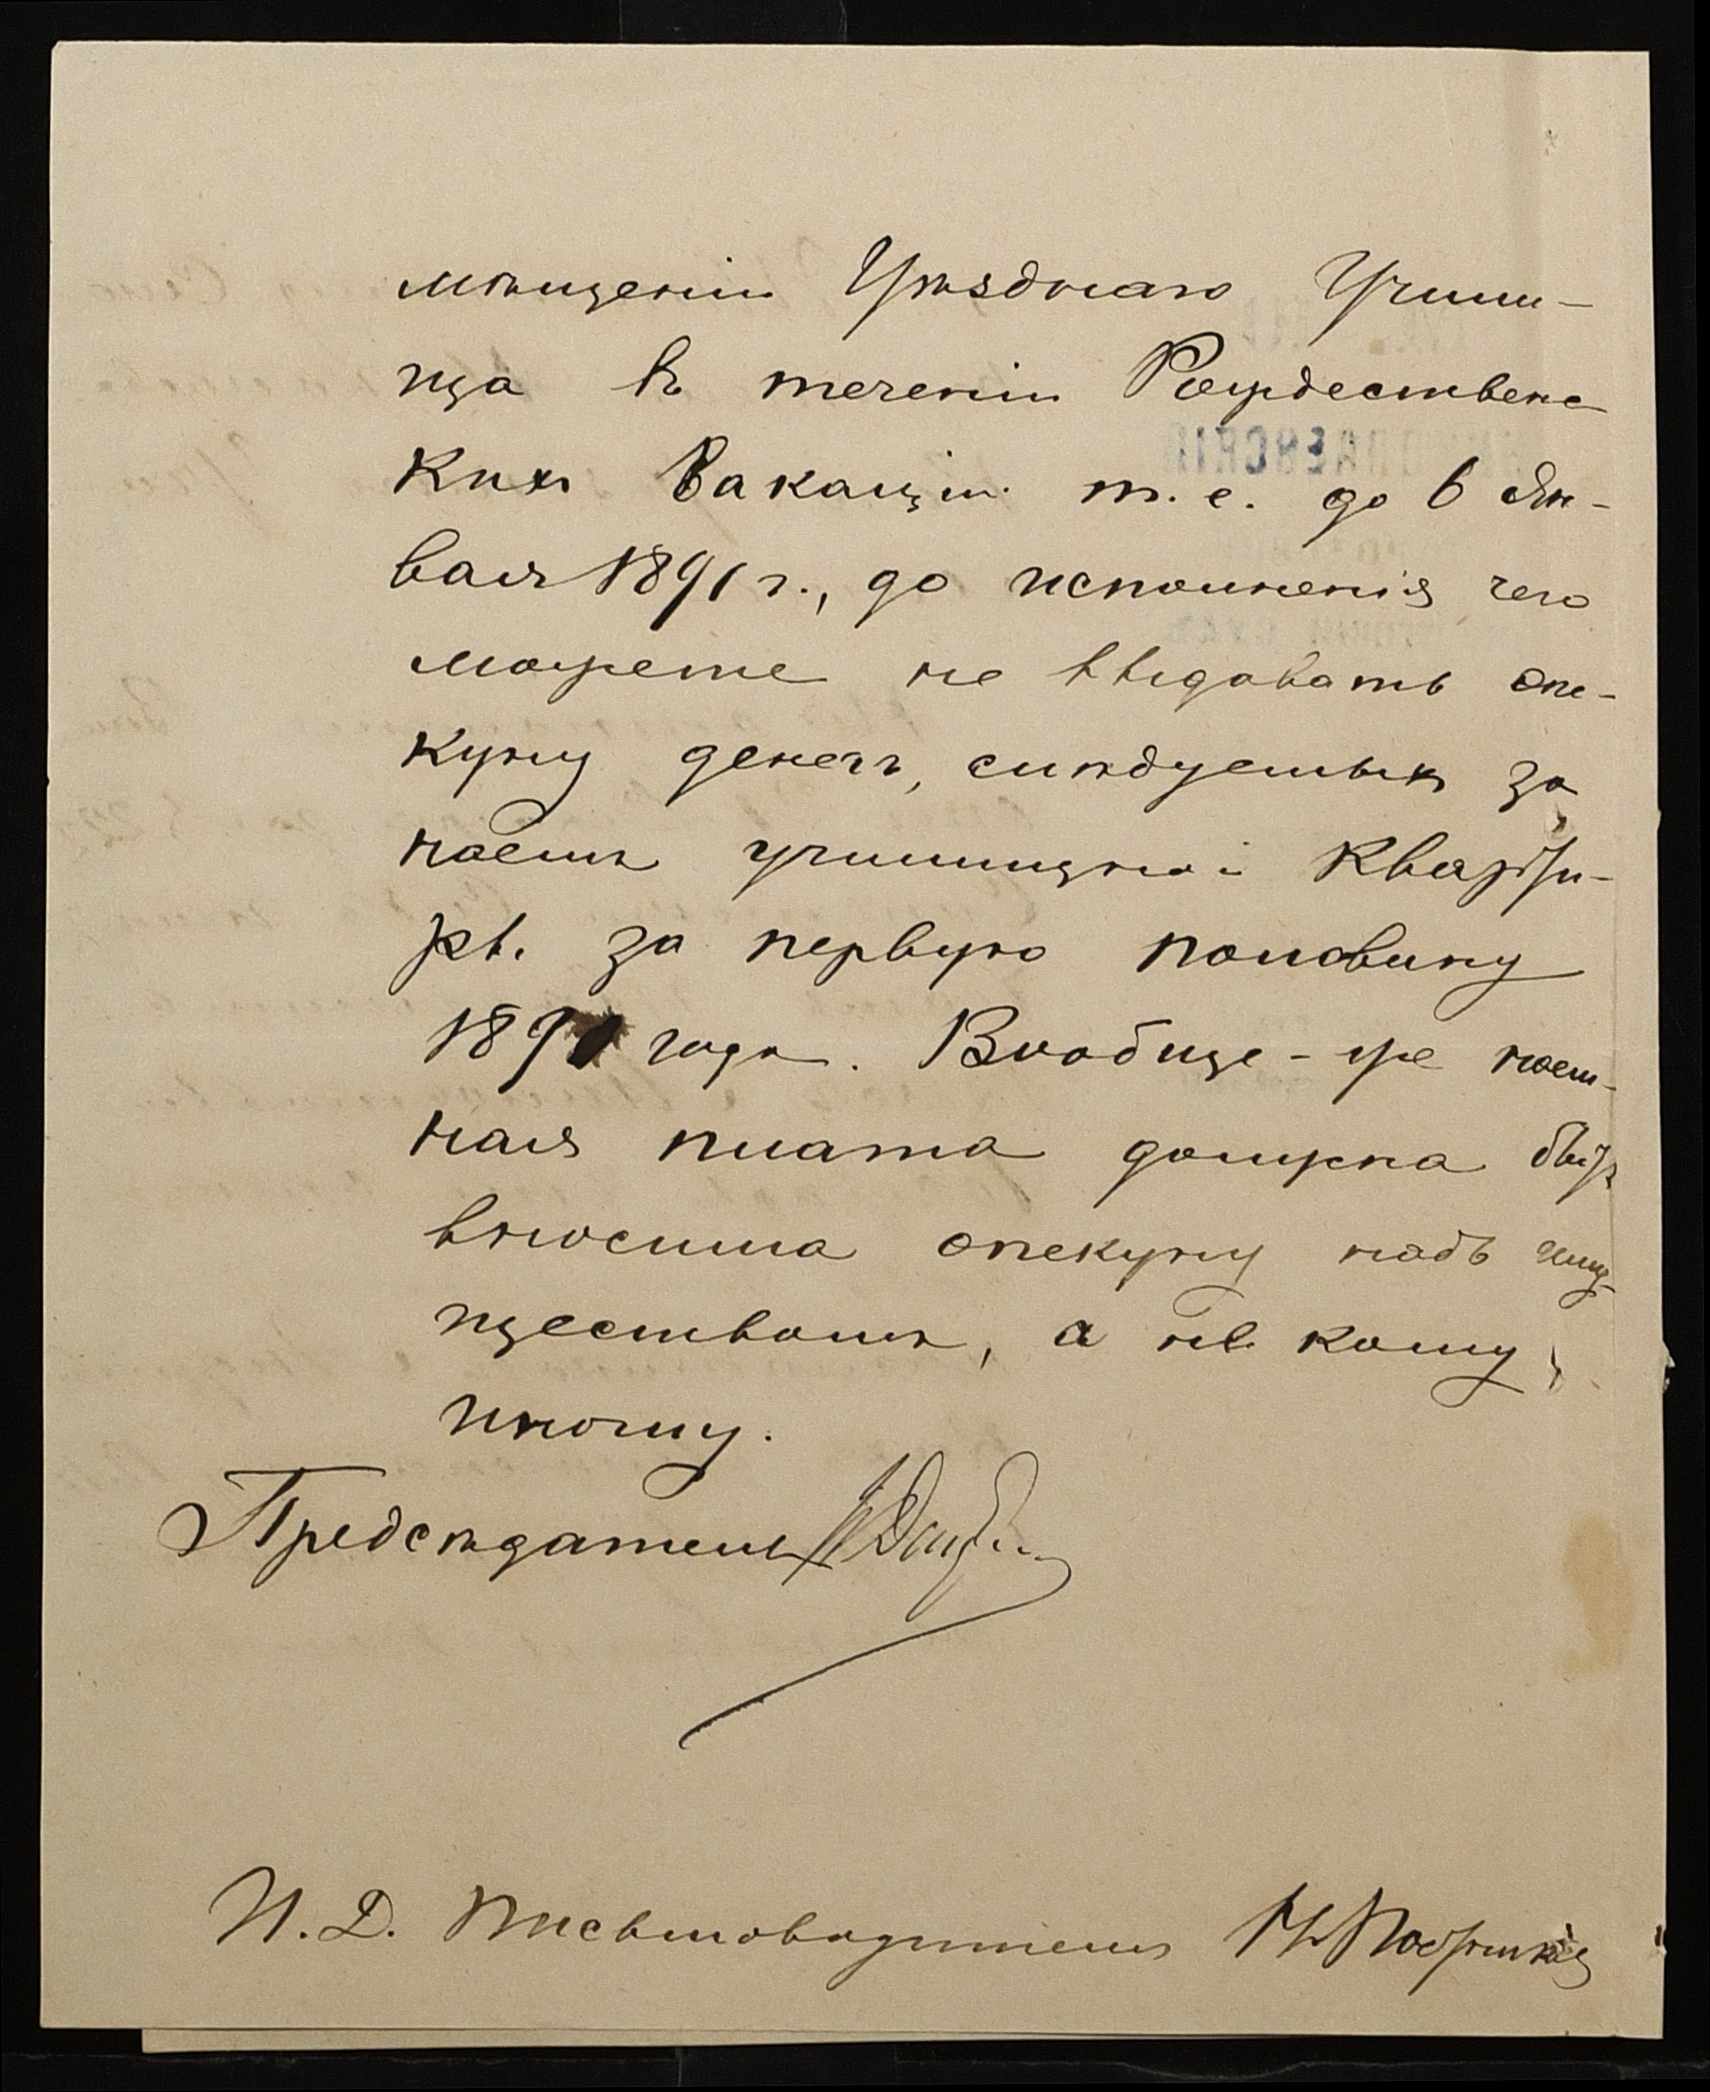 мѣщеніи Уѣзднаго Учили-
ща въ теченіи Рождественс
кихъ вакацій т. е. до 6 Ян-
варя 1891 г., до исполненія чего
можете не выдавать опе-
куну денегъ, слѣдуемыхъ за
наемъ училищной Кварти-
ры за первую половину
1891 года. Вообще-же наем-
ная плата должна быть
вносима опекуну надъ иму-
ществомъ, а не кому
иному.
Предсѣдатель
И. Д. Письмоводителя